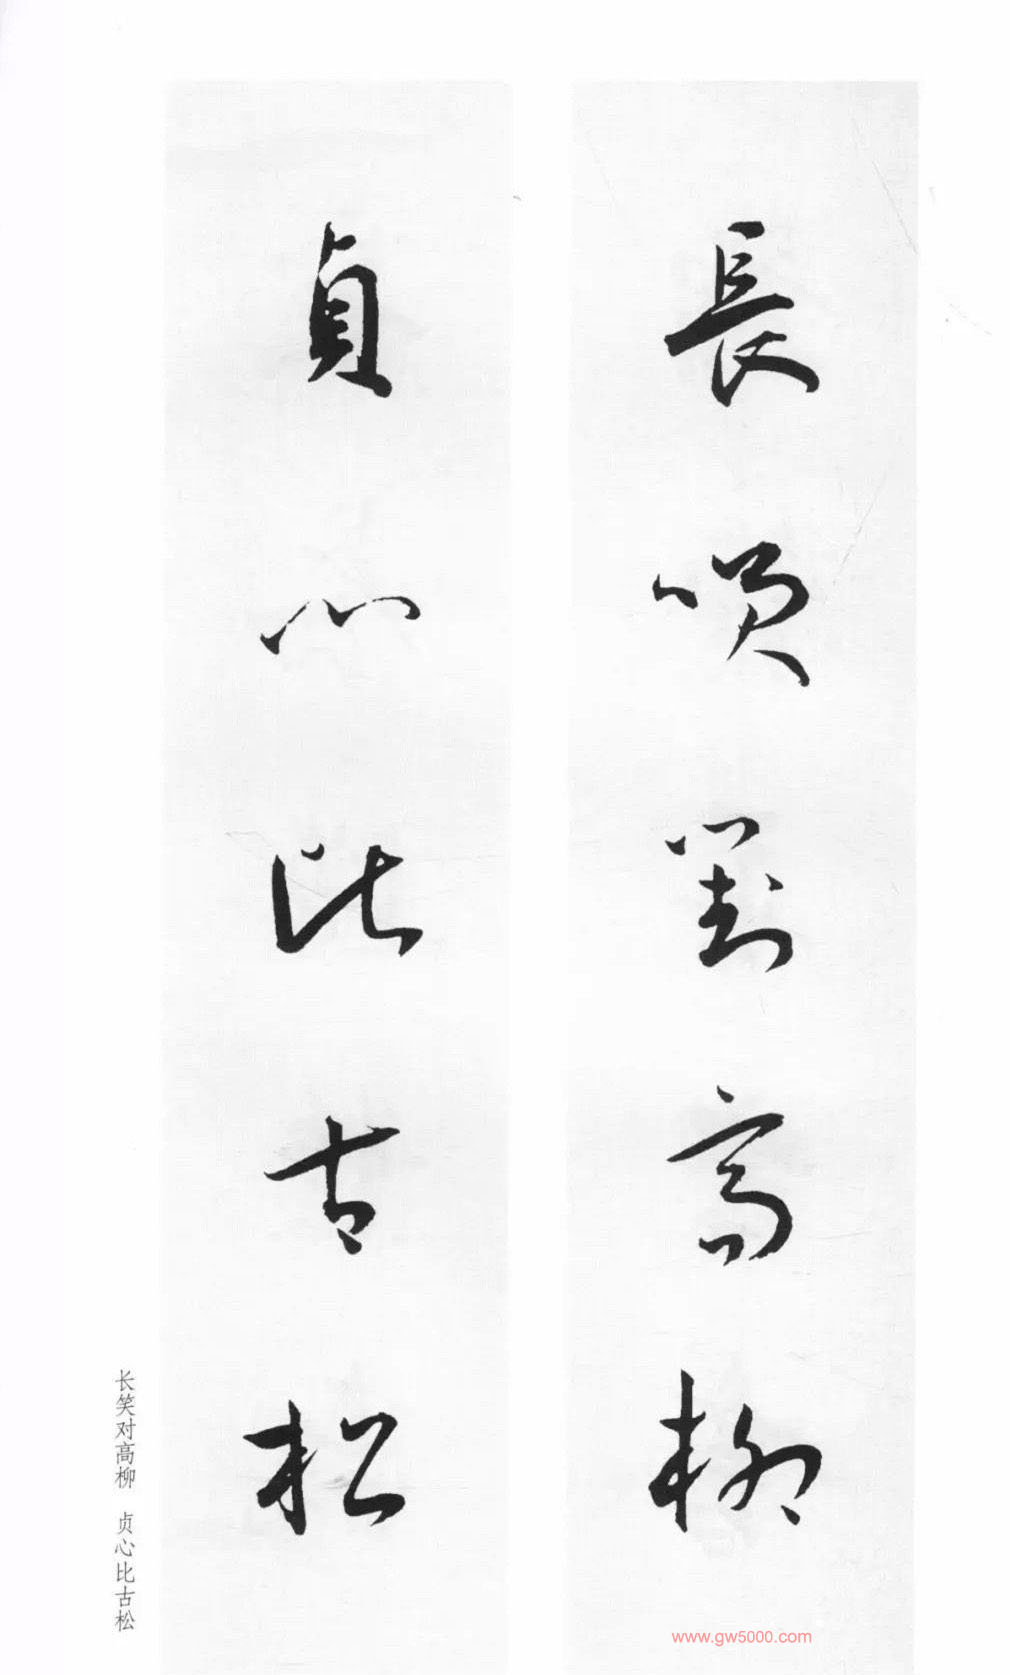 長咲對高柳
貞心比古松
长笑对高柳 贞心比古松
www.gw5000.com